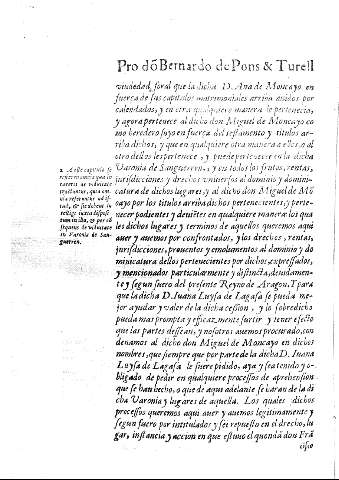 Pro dõ Bernardo de Pons & Turell
viudedad foral que la dicha D. Ana de Moncayo en
fuerça de sus capitulos matrimoniales arriba auidos por
calendados, y en otra qualquiere manera le pertenecio,
y agora pertenece al dicho don Miguel de Moncayo co
mo heredero suyo en fuerça del testamento y titulos ar-
riba dichos, y en qualquiere otra manera a ellos o al
otro dellos les pertenece, y puede pertenecer en la dicha
Varonia de Sanguerren, y en todos los frutos, rentas,
jurisdicciones y drechos vniuersos al dominio y domini-
catura de dichos lugares, y al dicho don Miguel de Mõ
cayo por los titulos arriba dichos pertenecientes, y perte-
necer podientes y deuientes en qualquiere manera los qua
les dichos lugares y terminos de aquellos queremos aqui
auer y auemos por confrontados, y los drechos, rentas,
jurisdicciones, prouentos y emolumentos al dominio y do
minicatura dellos pertenecientes por dichos, expressados,
y mencionados particularmente y distincta, deuidamen-
te y segun fuero del presente Reyno de Aragon. I para
que la dicha D. Iuana Luysa de Lagasa se pueda me-
jor ayudar y valer de la dicha cession, y lo sobredicho
pueda mas prompta y eficaz mente surtir y tener efecto
que las partes dessean, y nosotros auemos procurado, con
denamos al dicho don Miguel de Moncayo en dichos
nombres, que siempre que por parte de la dicha D. Iuana
Luysa de Lagasa le fuere pidido, aya y sea tenido y o-
bligado de pedir en qualquiere processos de aprehension
que se han hecho, o que de aqui adelante se haran de la di
cha Varonia y lugares de aquella. Los quales dichos
processos queremos aqui auer y auemos legitimamente y
segun fuero por intitulados y sei repuesto en el drecho, lu
gar, instancia y accion en que estuuo el quondã don Frã
cisco
2 A este capitulo se